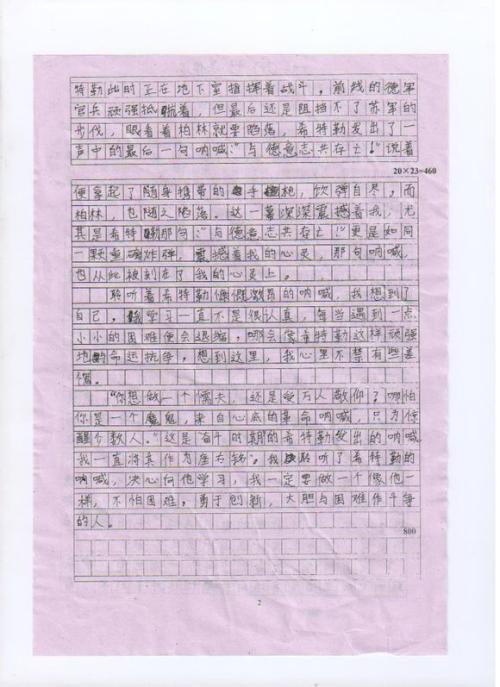 特勤此时正在地下室指挥着战斗。前线的德军
官兵顽强抵挡着，但最后还是阻挡不了苏军的
步伐，眼看着柏林就要陷落，希特勒发出了一
声中的最后一句呐喊：“与德意志共存亡！”说着
20×23=460
便拿起了随身携带的手枪，饮弹自尽，而
柏林，也随之陷落。这一幕深深震撼着我，尤
其是希特勒那句：“与德意志共存亡！”更是如同
一颗重磅炸弹，震撼着我的心灵，那句呐喊，
也从此被刻在了我的心灵上。
聆听着希特勒慷慨激昂的呐喊，我想到了
自己。我学习一直不是很认真，每当遇到一点
小小的困难便会退缩，哪会像希特勒这样顽强
地与命运抗争。想到这里，我心里不禁有些羞
愧。
“你想做一个懦夫，还是受万人敬仰？哪怕
你是一个魔鬼，来自心底的革命呐喊，只为惊
醒个数人。”这是奋斗时期的希特勒发出的呐喊
我一直将其作为座右铭。我聆听了希特勒的
呐喊，决心向他学习，我一定要做一个像他一
样，不怕困难，勇于创新，大胆与困难作斗争
的人。
800
2